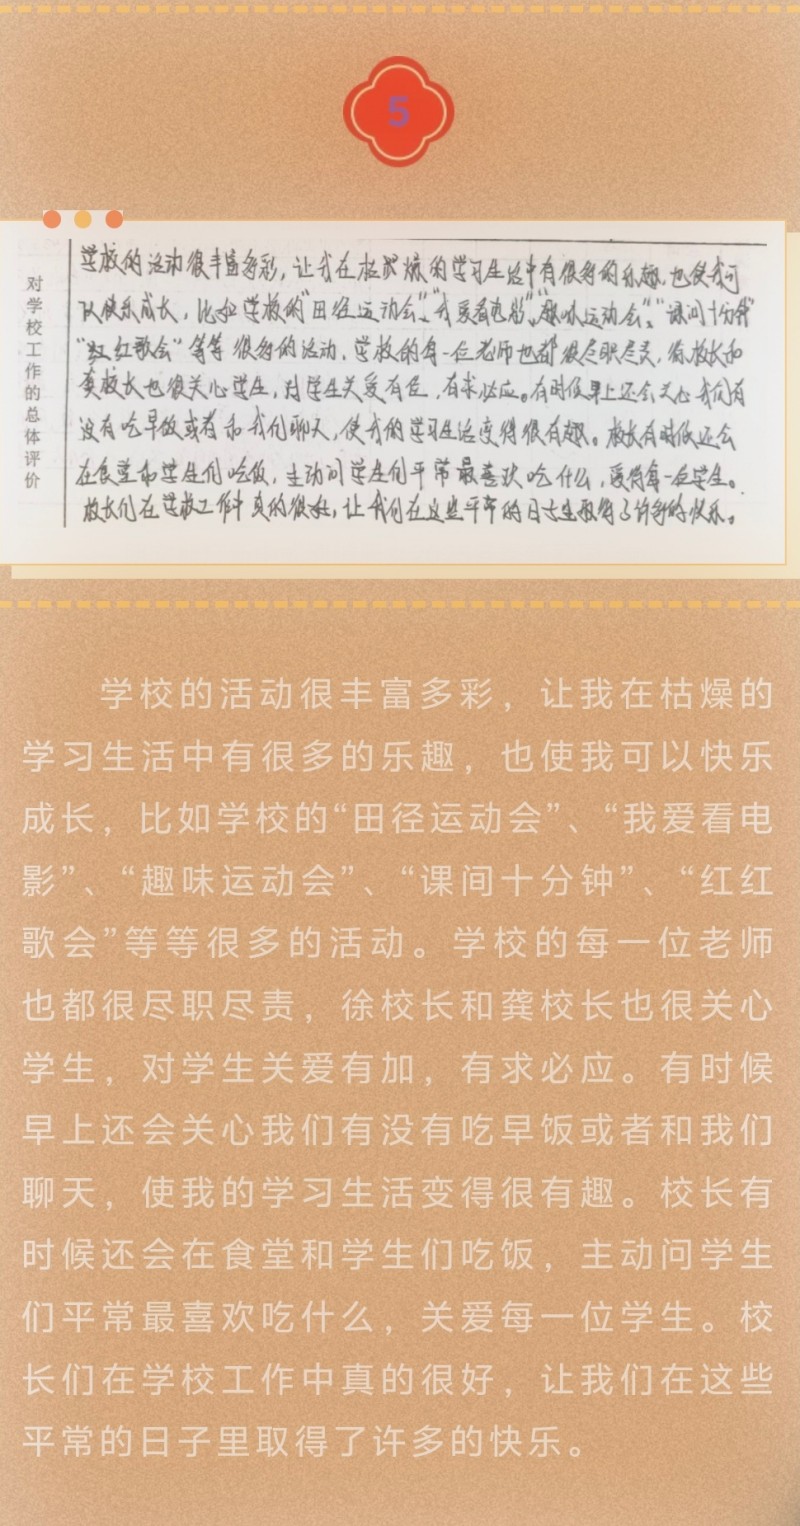 5
对学校工作的总体评价
学校的活动很丰富多彩，让我在枯燥的学习生活中有很多的乐趣，也使我可
以快乐成长，比如学校的“田径运动会”、“我爱看电影”、“趣味运动会”、“课间十分钟”
“红红歌会”等等很多的活动，学校的每一位老师也都很尽职尽责，徐校长和
龚校长也很关心学生，对学生关爱有加，有求必应。有时候早上还会关心我们有
没有吃早饭或者和我们聊天，使我的学习生活变得很有趣。校长有时候还会
在食堂和学生们吃饭，主动问学生们平常最喜欢吃什么，爱待每一位学生。
校长们在学校工作中真的很好，让我们在这些平常的日子里取得了许多的快乐。
学校的活动很丰富多彩，让我在枯燥的
学习生活中有很多的乐趣，也使我可以快乐
成长，比如学校的“田径运动会”、“我爱看电
影”、“趣味运动会”、“课间十分钟”、“红红
歌会”等等很多的活动。学校的每一位老师
也都很尽职尽责，徐校长和龚校长也很关心
学生，对学生关爱有加，有求必应。有时候
早上还会关心我们有没有吃早饭或者和我们
聊天，使我的学习生活变得很有趣。校长有
时候还会在食堂和学生们吃饭，主动问学生
们平常最喜欢吃什么，关爱每一位学生。校
长们在学校工作中真的很好，让我们在这些
平常的日子里取得了许多的快乐。